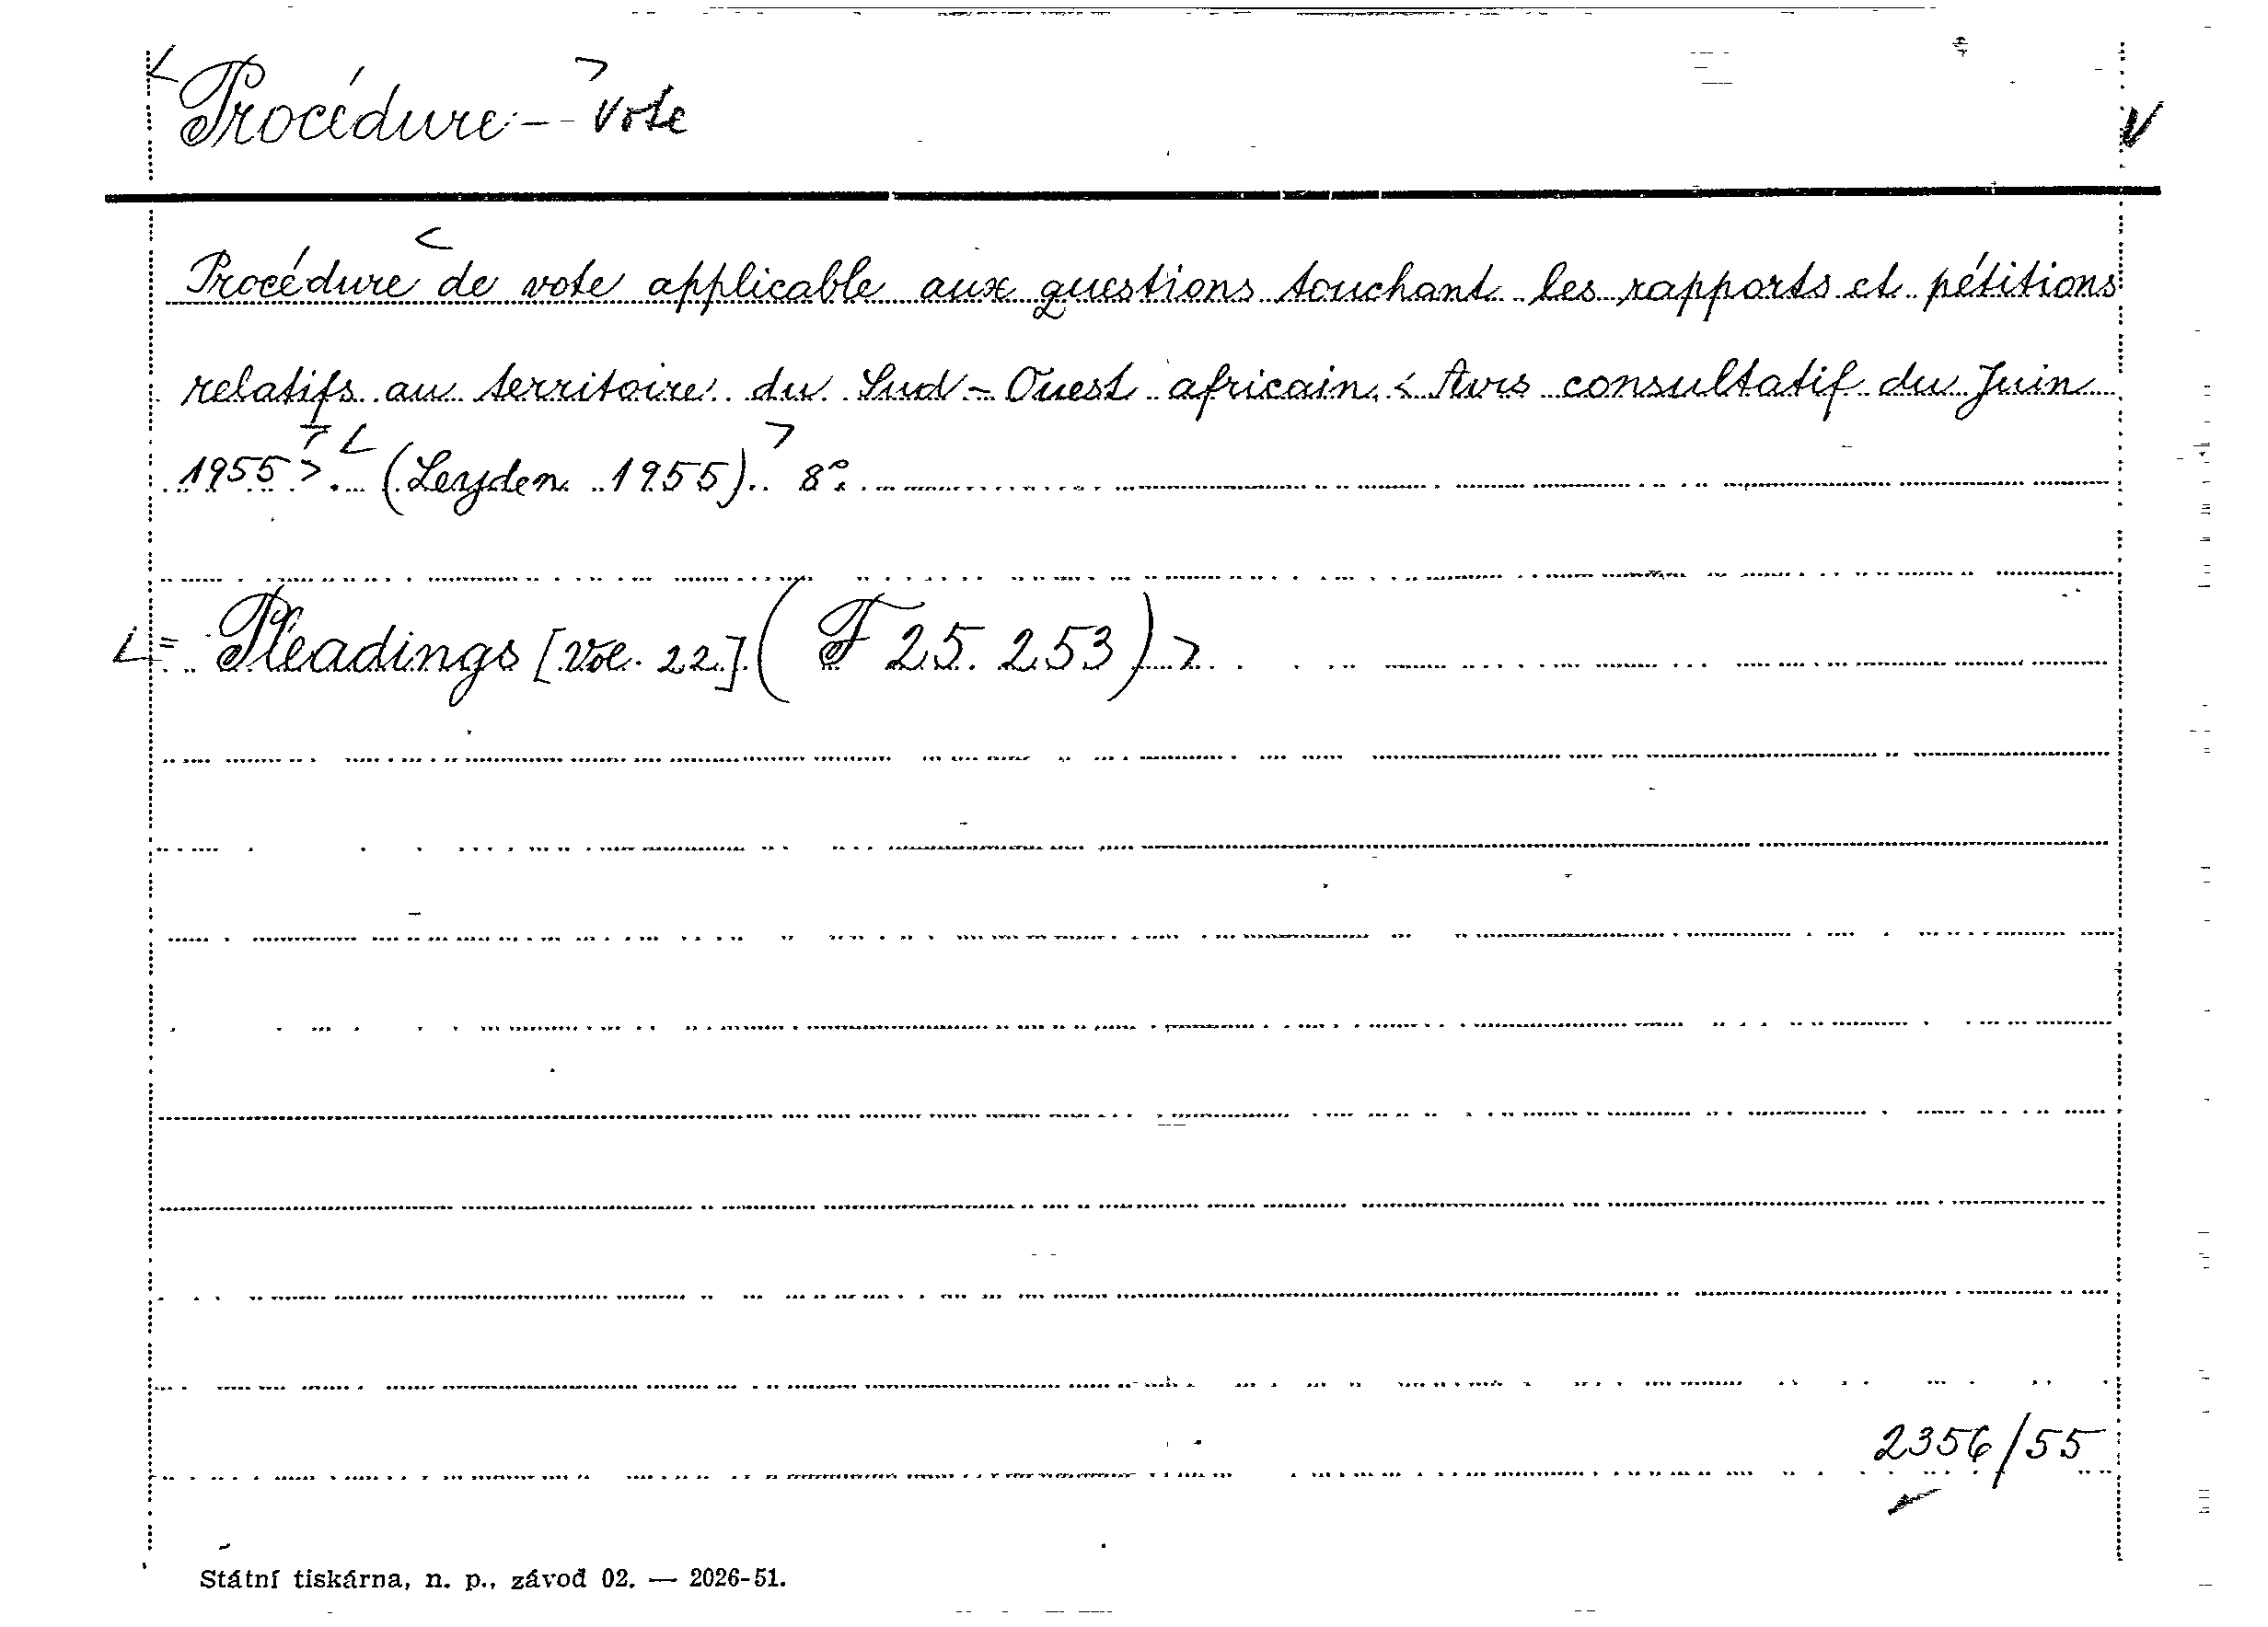 < Procédure - - vote > V
Procédure < de vote applicable aux questions touchant les rapports et pétitions
relatifs au territoire du Sud-Ouest africain. < Avis consultatif du Juin
1955 > . < (Leyden 1955). > 8°.
< = Pleadings [Vol. 22]. ( F 25. 253 ) >
2356/55
Státní tiskárna, n. p., závod 02. — 2026-51.